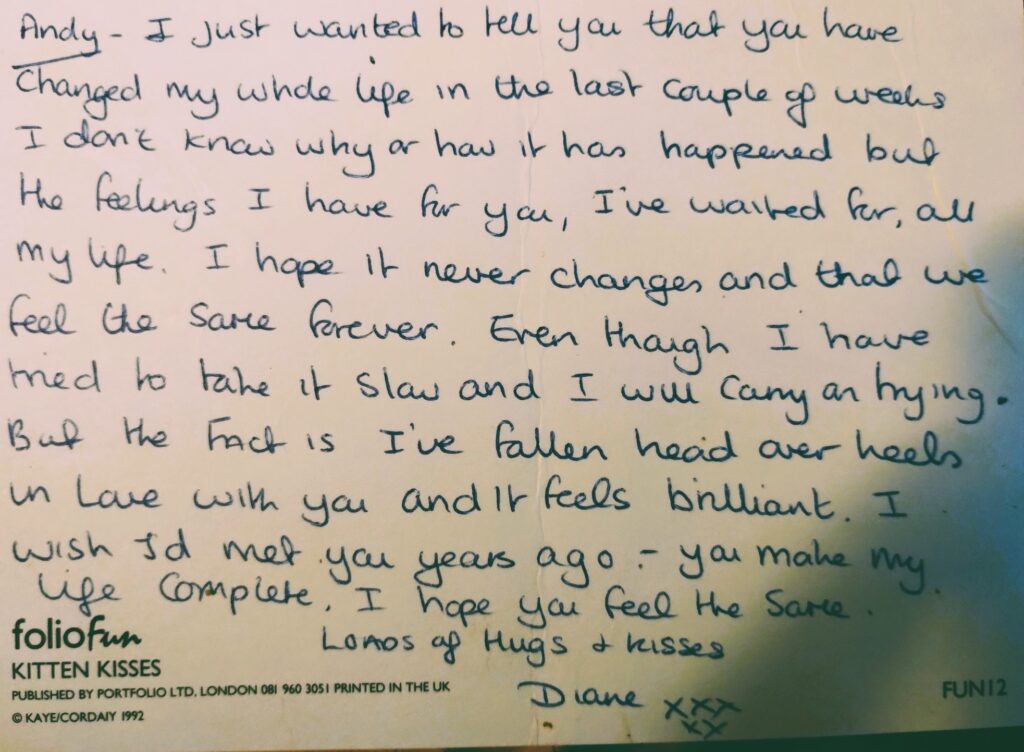 Andy - I just wanted to tell you that you have
changed my whole life in the last couple of weeks
I don't know why or how it has happened but
the feelings I have for you, I've waited for, all
my life. I hope it never changes and that we
feel the same forever. Even though I have
tried to take it slow and I will carry on trying.
But the Fact is I've fallen head over heels
in Love with you and it feels brilliant. I
wish I'd met you years ago - you make my
life complete. I hope you feel the same.
Loads of Hugs + kisses
Diane xxx
xx
foliofun
KITTEN KISSES
PUBLISHED BY PORTFOLIO LTD, LONDON 081 960 3051 PRINTED IN THE UK
© KAYE/CORDAIY 1992
FUN12